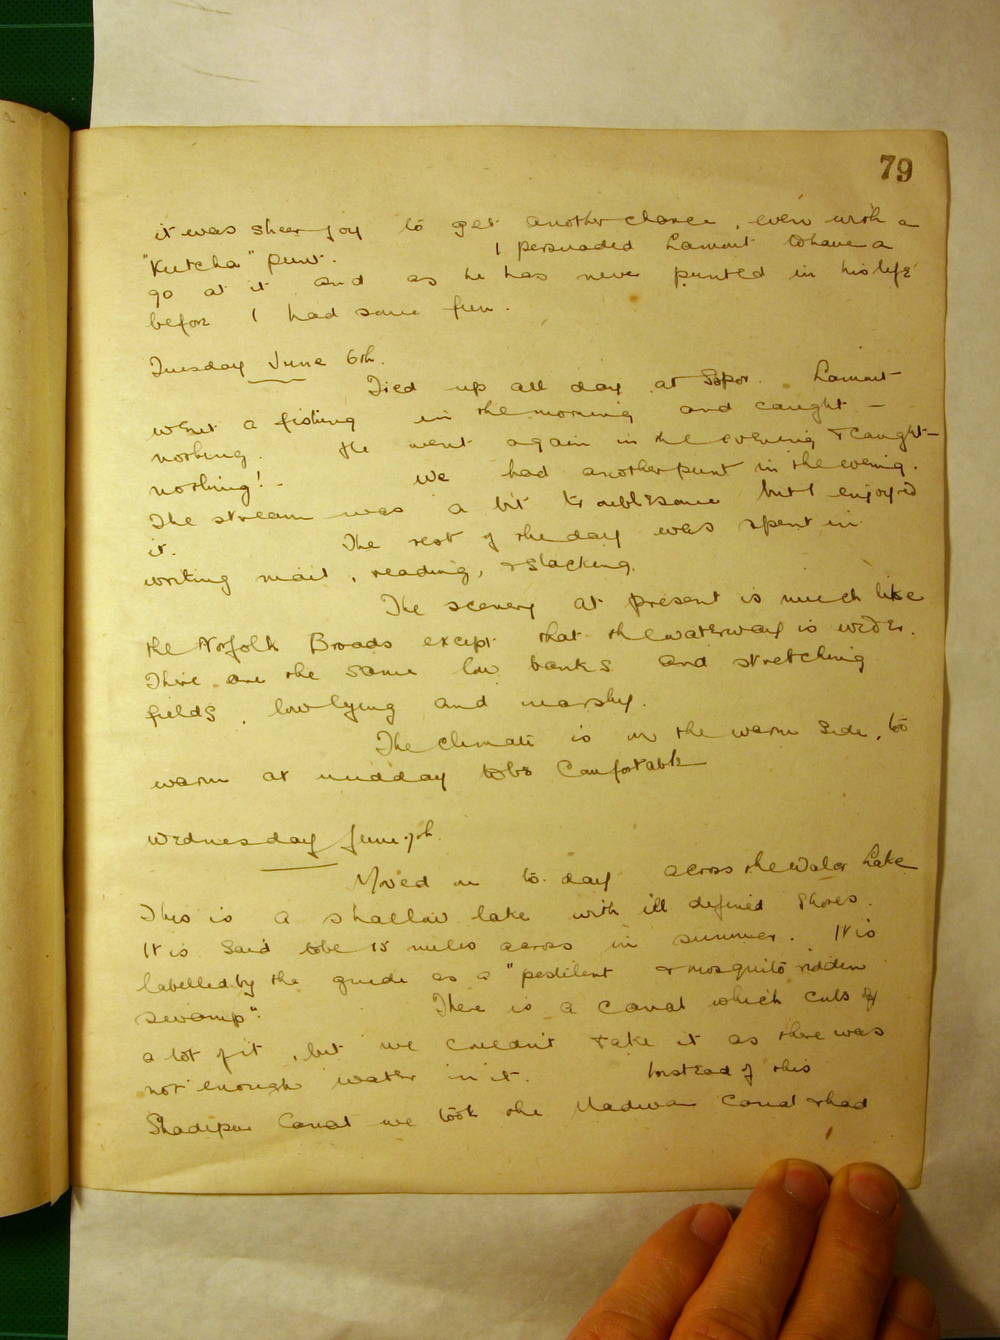 79
it was sheer joy to get another chance, even with a
"Kutcha" punt. I persuaded Lamont to have a
go at it and as he has never punted in his life
before I had some fun.
Tuesday June 6th.
Tied up all day at Sopor. Lamont
went a fishing in the morning and caught -
nothing. He went again in the evening & caught -
nothing! - We had another punt in the evening.
The stream was a bit troublesome but I enjoyed
it. The rest of the day was spent in
writing mail, reading, & slacking.
The scenery at present is much like
the Norfolk Broads except that the waterway is wider.
There are the same low banks and stretching
fields, low lying and marshy.
The climate is on the warm side, too
warm at midday to be comfortable
Wednesday June 7th.
Moved on to day across the Walar Lake
This is a shallow lake with ill defined shores.
It is said to be 15 miles across in summer. It is
labelled by the guide as a "pestilent & mosquito ridden
swamp". There is a canal which cuts off
a lot of it, but we couldn't take it as there was
not enough water in it. Instead of this
Shadipur Canal we took the canal & had